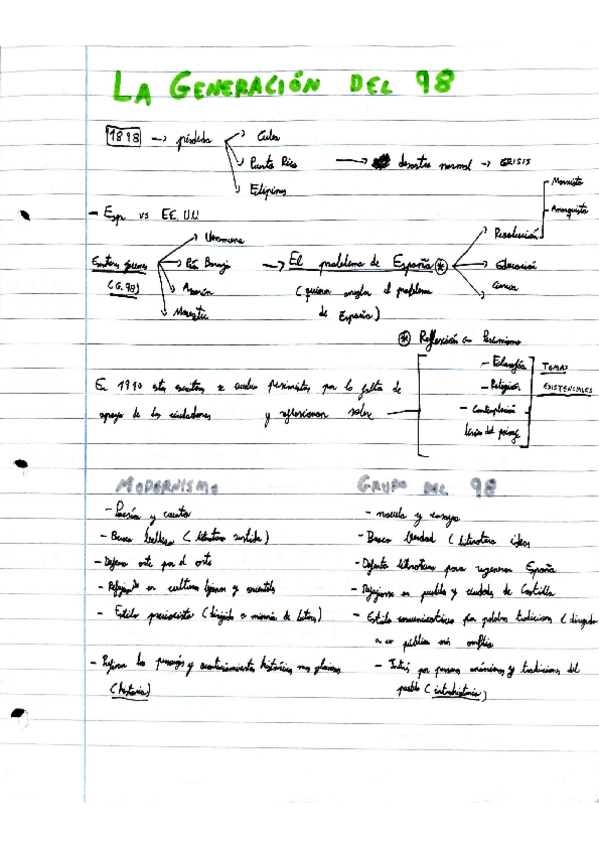 LA GENERACIÓN DEL 98
1898 → pérdida
Cuba
Puerto Rico → desastre → CRISIS
Filipinas
- Esp. vs EE.UU
Marxista
Anarquista
Revolución
Unamuno
Escritores jóvenes
(G. 98)
Pío Baroja
Azorín
Maeztu
→ El problema de España *
(quieren arreglar el problema
de España)
Educación
* Reflexión Pesimismo
En 1910 estos escritores se pesimistas por la falta de
apoyo de los ciudadanos y reflexionan sobre
- Filosofía
- Religión
- Contemplación
del
TEMAS
EXISTENCIALES
MODERNISMO
- Poesía y cuento
- Busca belleza (literatura
- Defiende arte por el arte
- en culturas y orientales
- Estilo preciosista (dirigido a minoría de
- los personajes y acontecimientos históricos
(historia)
GRUPO DEL 98
- novela y ensayo
- Busca Verdad (literatura ideas
- literatura para regenerar España
- en pueblos y ciudades de Castilla
- Estilo por palabras (dirigido
a un público más amplio
- Interés por personas anónimas y tradiciones del
pueblo (intrahistoria)